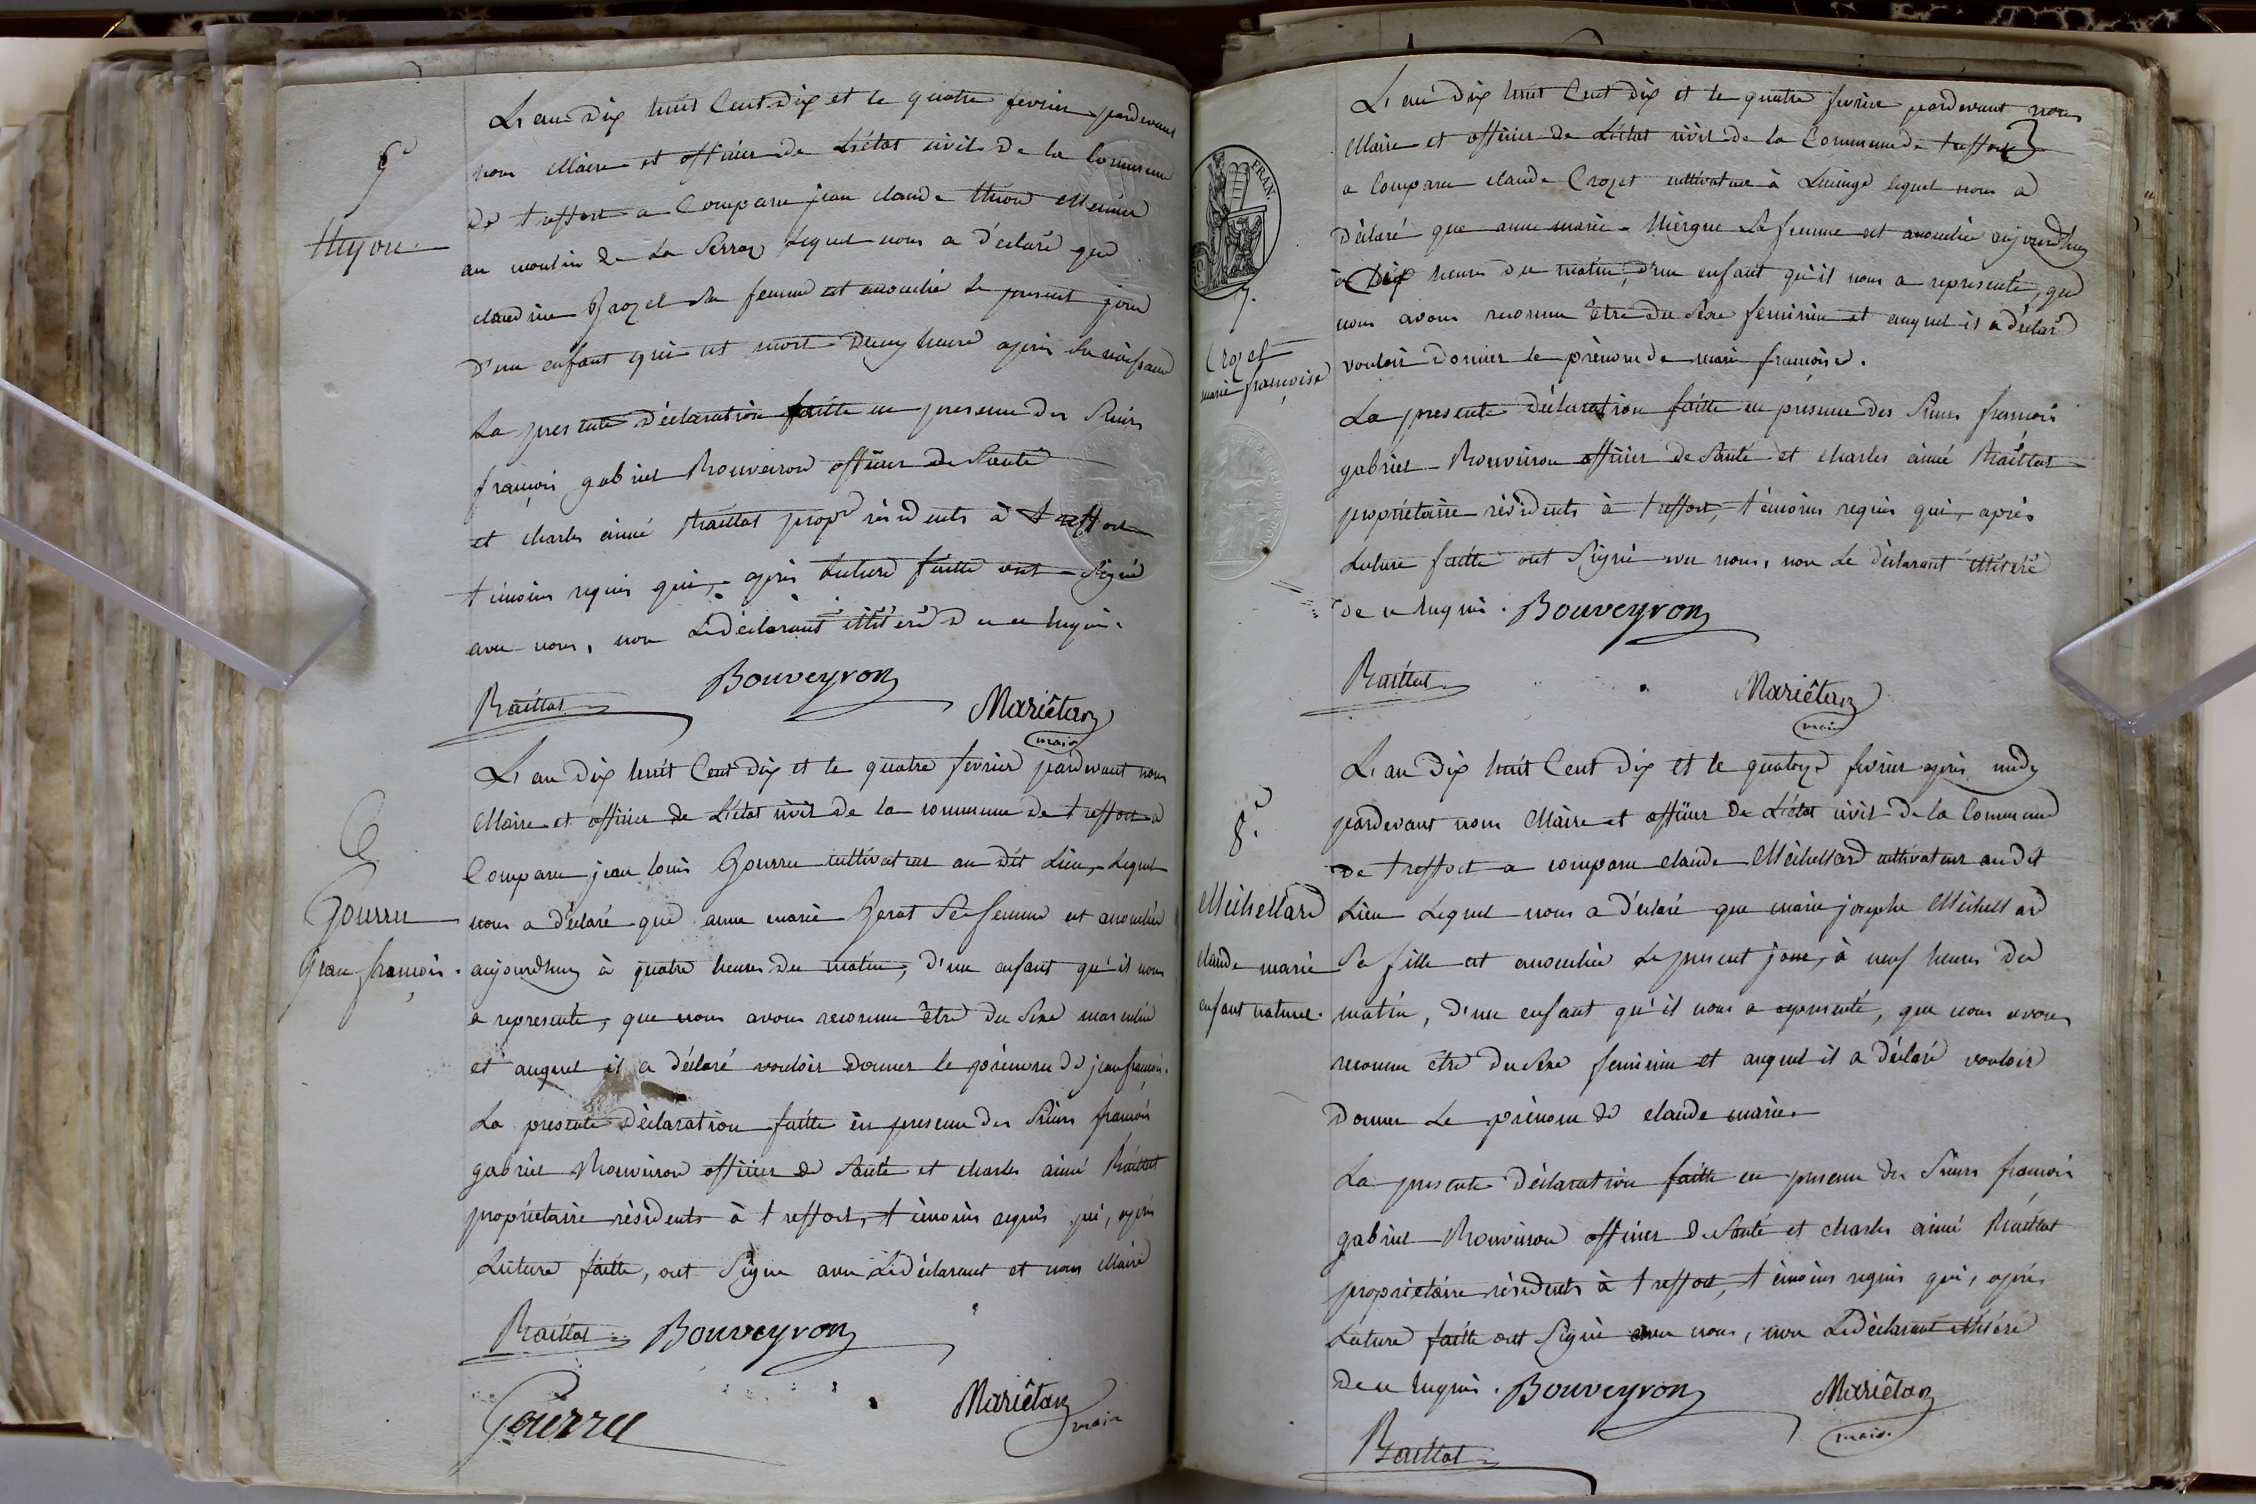 5e
thyon
L'an dix huit Cent dix et le quatre fevrier pardevant
nous Maire et officier de L'état civil de la Commune
de treffort a Comparu jean claude thion Meunier
au moulin de La Serraz Lequel nous a déclaré que
claudine Brozet Sa femme est accouchée Le present jour
d'un enfant qui est mort demy heure après Sa naissance
La presente déclaration faitte en presence des Sieurs
françois gabriel Bouveiron officier de Santé
et charles aimé Raillat propre résidents à treffort
témoins requis qui, après Lecture faitte ont Signé
avec nous, non Le déclarant illitéré de ce enquis.
Raillat Bouveyron Mariétan
maire
6
Gourru
jean françois.
L'an dix huit Cent dix et le quatre fevrier pardevant nous
Maire et officier de L'état civil de la commune de treffort a
Comparu jean Louis Gourru cultivateur au dit Lieu, Lequel
nous a déclaré que anne marie Sa femme est accouchée
aujourdhuy à quatre heures du matin, d'un enfant qu'il nous
a représenté, que nous avons reconnu être du Sexe masculin
et auquel il a déclaré vouloir donner le prénom de jean françois.
La presente déclaration faitte en presence des Sieurs françois
gabriel Bouveiron officier de Santé et charles aimé Raillat
propriétaire résidents à treffort, témoins requis qui, après
Lecture faitte, ont Signé avec Le déclarant et nous Maire
Raillat Bouveyron
Gourru Mariétan
maire
FRAN.
7.
Crozet
marie françoise
L'an dix huit Cent dix et le quatre fevrier pardevant nous
Maire et officier de L'état civil de la Commune de treffort
a Comparu claude Crozet cultivateur à Lucinge lequel nous a
déclaré que anne marie Sa femme est accouchée aujourdhuy
à dix heures du matin, d'un enfant qu'il nous a représenté, que
nous avons reconnu être du Sexe feminin et auquel il a déclaré
vouloir donner le prénom de marie françoise.
La presente déclaration faitte en présence des Sieurs françois
gabriel Bouveiron officier de Santé et charles aimé Raillat
propriétaire résidents à treffort, témoins requis qui, après
Lecture faitte ont Signé avec nous, non Le déclarant illitéré
de ce enquis. Bouveyron
Raillat Mariétan
maire
8e.
Michellard
claude marie
enfant naturel.
L'an dix huit Cent dix et le quatorze fevrier après midy
pardevant nous Maire et officier de L'état civil de la Commune
de treffort a comparu claude Michellard cultivateur au dit
Lieu Lequel nous a déclaré que marie josephe Michellard
Sa fille est accouchée Le present jour, à neuf heures du
matin, d'un enfant qu'il nous a représenté, que nous avons
reconnu être du Sexe feminin et auquel il a déclaré vouloir
donner Le prénom de claude marie.
La presente déclaration faitte en presence des Sieurs françois
gabriel Bouveiron officier de Santé et charles aimé Raillat
propriétaire résidents à treffort, témoins requis qui, après
Lecture faitte ont Signé avec nous, non Le déclarant illitéré
de ce enquis. Bouveyron Mariétan
maire.
Raillat